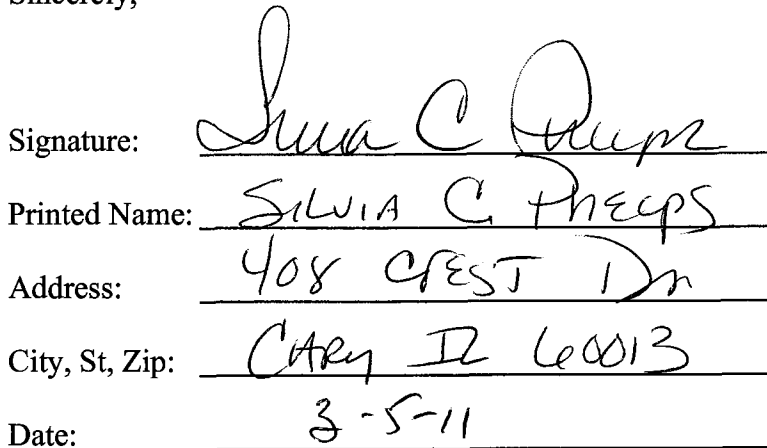 Sincerely,
Signature: Silvia C Phelps
Printed Name: SILVIA C PhELPS
Address: 408 CREST Dr
City, St, Zip: CARY IL 60013
Date: 3-5-11